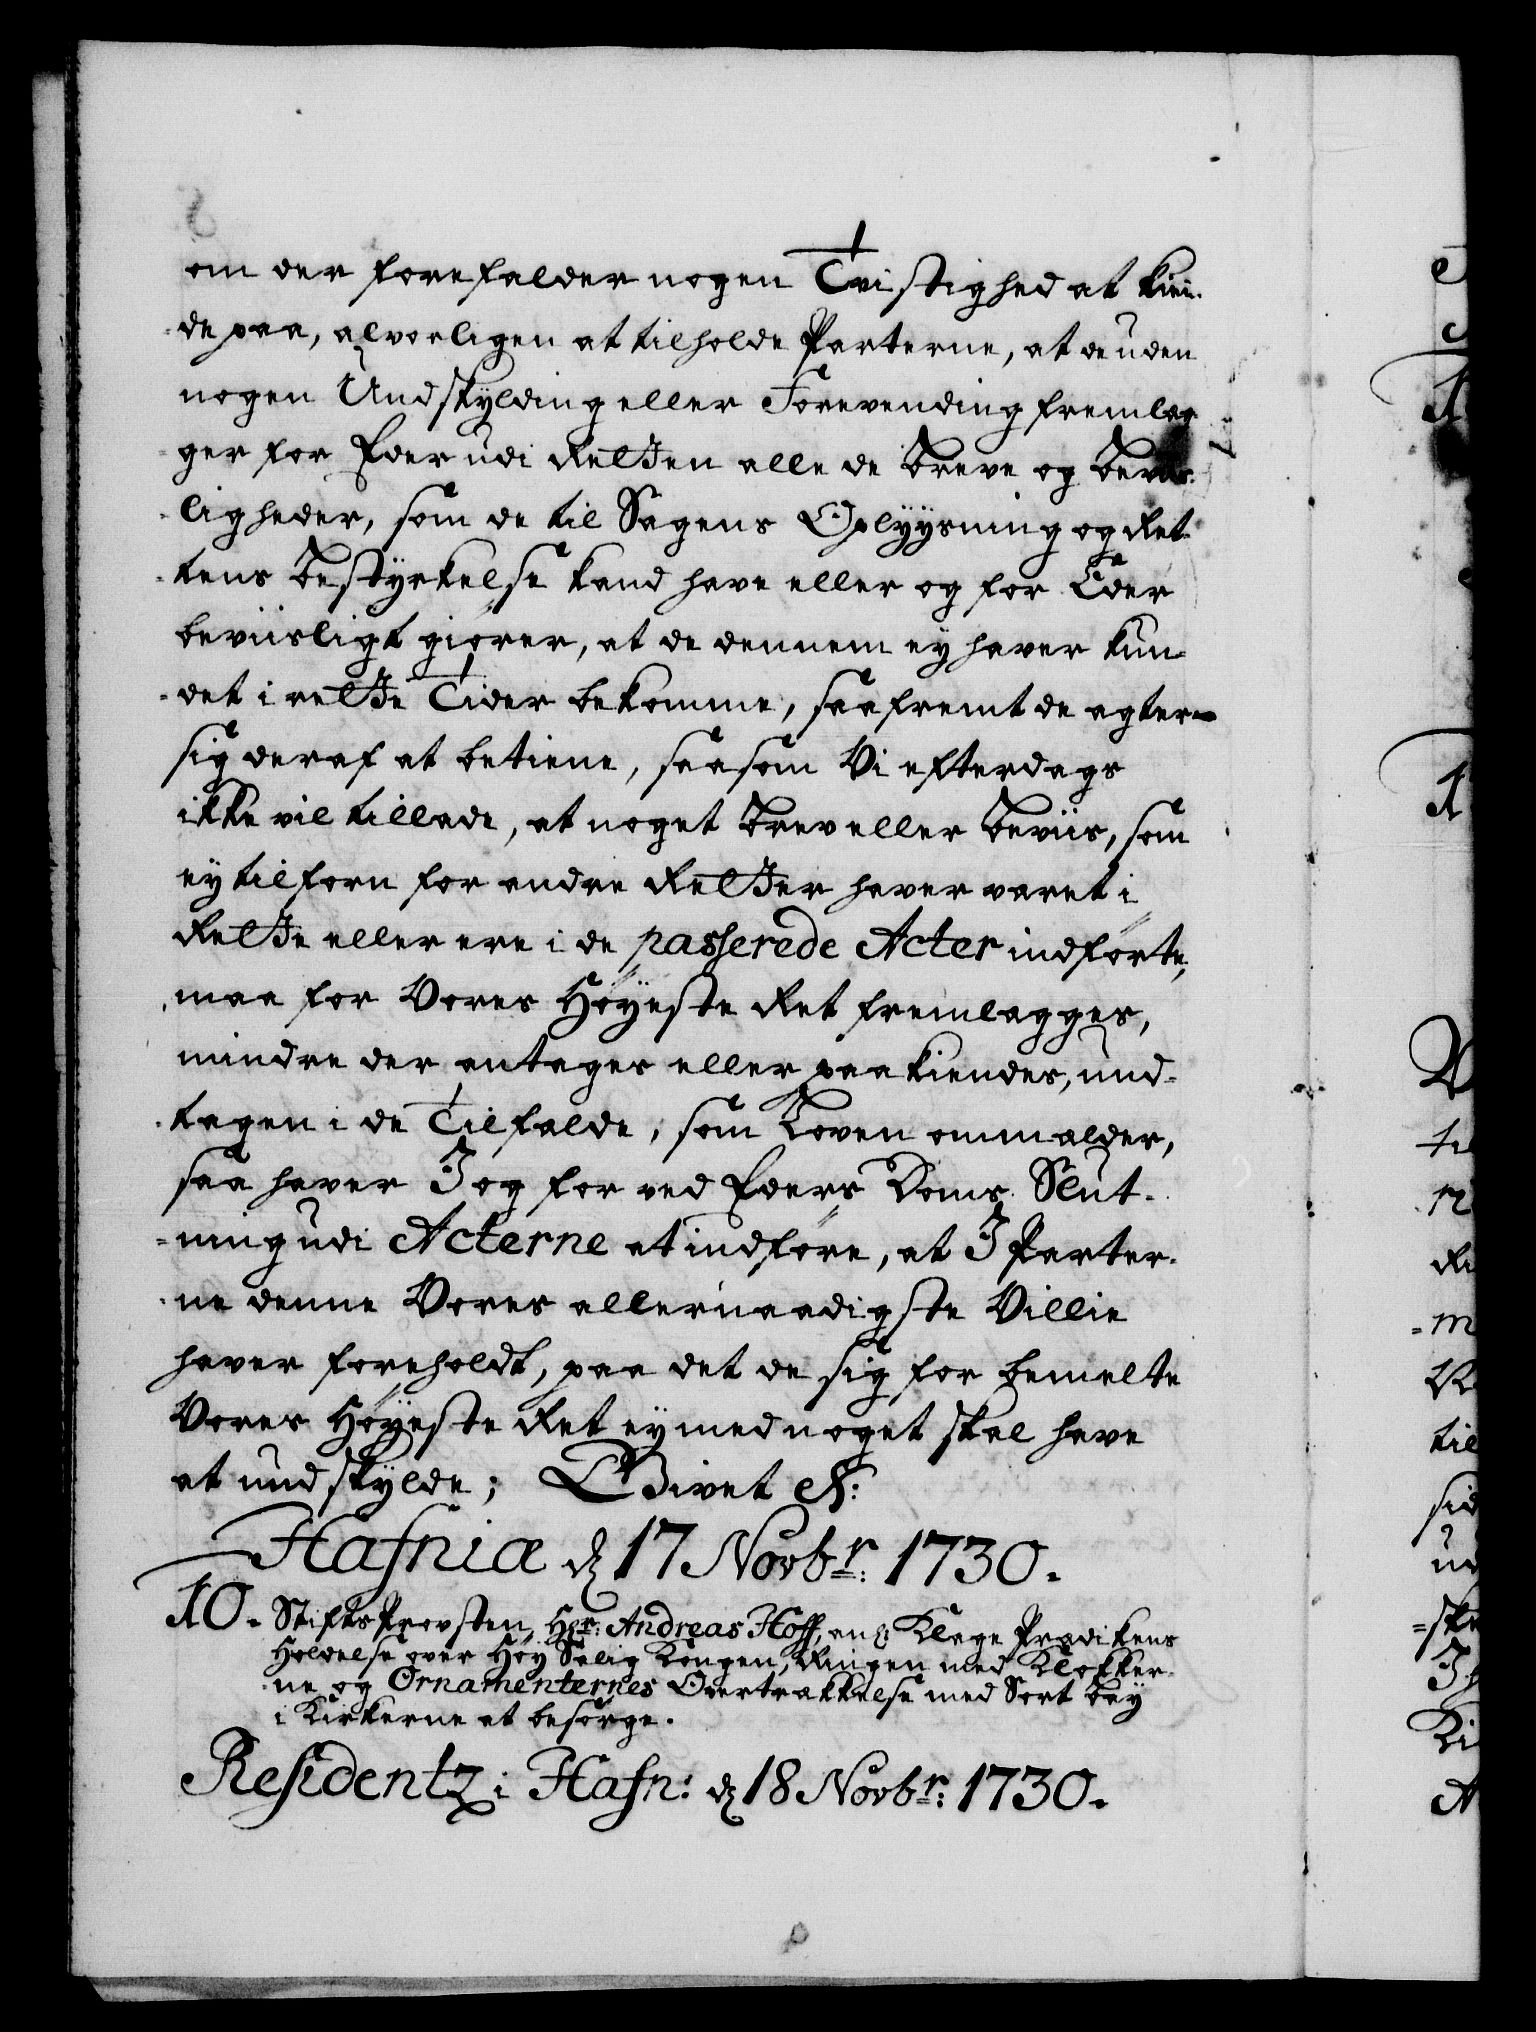 om der forefalder nogen Tvistighed at kien-
de paa, alvorligen at tilholde Parterne, at de uden
nogen Undskylding eller Forevending fremlæg-
ger for Eder udi Retten alle de Breve og Beviis-
ligheder, som de til Sagens Oplyysning og Ret-
tens Bestyrkelse kand have eller og for Eder
beviisligt giører, at de dennem ey haver kun-
det i rette Tider bekomme, saafremt de agter
sig deraf at betiene, saasom Vi efterdags
ikke vil tillade, at noget Brev eller Beviis, som
ey tilforn for andre Retter haver været i
Rette eller ere i de passerede Acter indførte,
maa for Vores Høyeste Ret fremlægges,
mindre der antages eller paakiendes, und-
tagen i de Tilfælde, som Loven ommælder,
saa haver I og for ved Eders Doms Slut-
ning udi Acterne at indføre, at I Parter-
ne denne Vores allernaadigste Villie
haver foreholdt, paa det de sig for bemelte
Vores Høyeste Ret ey med noget skal have
at undskylde; Givet &:
Hafniæ d 17 Novbr: 1730.
10. Stifts Provsten, Hr: Andreas Hoff, anl: Klage Prædikens
Holdelse over Høy Salig Kongen, Ringen med Klokker-
ne og Ornamenternes Overtrækkelse med Sort Bay
i Kirkerne at besørge.
Residentz i Hafn: d 18 Novbr: 1730.